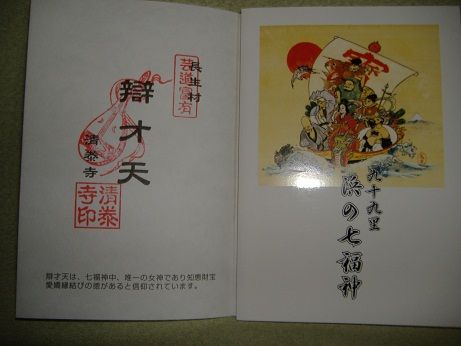 長生村
芸道富有
辯才天
清泰寺
清泰
寺印
辯才天は、七福神中、唯一の女神であり知恵財宝
愛嬌縁結びの徳があると信仰されています。
九十九里
浜の七福神